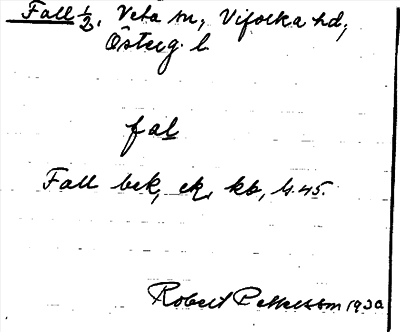 Fall ½, Veta sn, Vifolka hd,
Österg. l.
fal
Fall bek, ek, kb, 4.45.
Robert Pettersson 1930